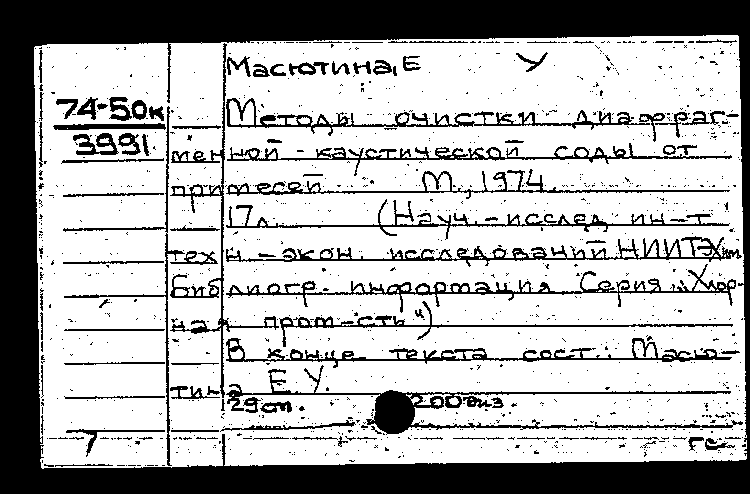 Масютина, Е У
74-50к
3991
Методы очистки диафраг-
менной каустической соды от
примесей М., 1974.
17л. (Науч.-исслед. ин-т
техн-экон. исследований НИИТЭХим
Библиогр. информация Серия „Хлор-
ная пром-сть")
В конце текста сост.: Масю-
тина Е. У.
29ст. 200экз.
7